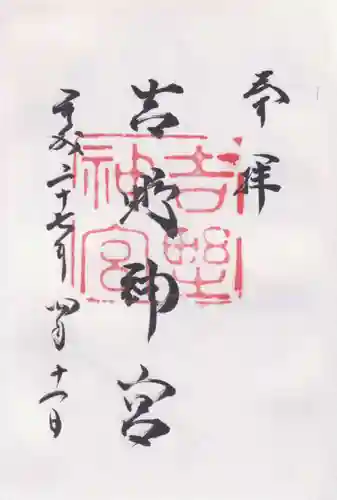 奉拝
吉野神宮
平成二十七年四月十一日
吉野神宮